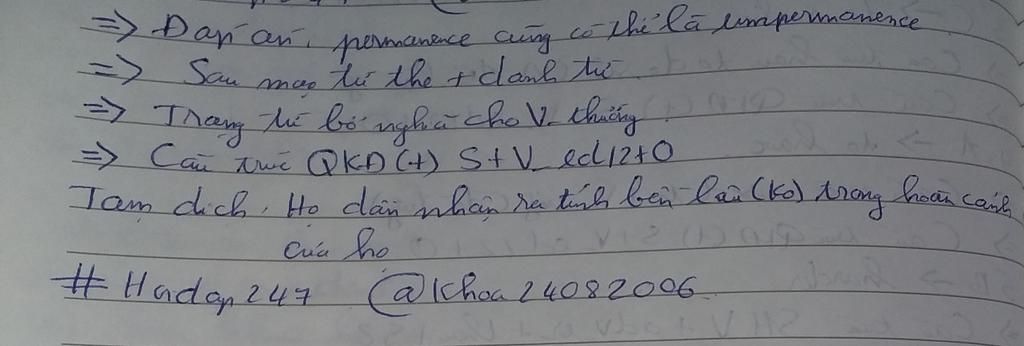 => Đáp án, permanence cũng có thể là umpermanence
=> Sau mạo từ the + danh từ
=> Trạng từ bổ nghĩa cho V_thường
=> Cấu trúc QKD(+) S+V_ed/2+O
Tạm dịch, Họ dần nhận ra tính bền lâu (ko) trong hoàn cảnh
của họ
# Hadap247 @khoa24082006